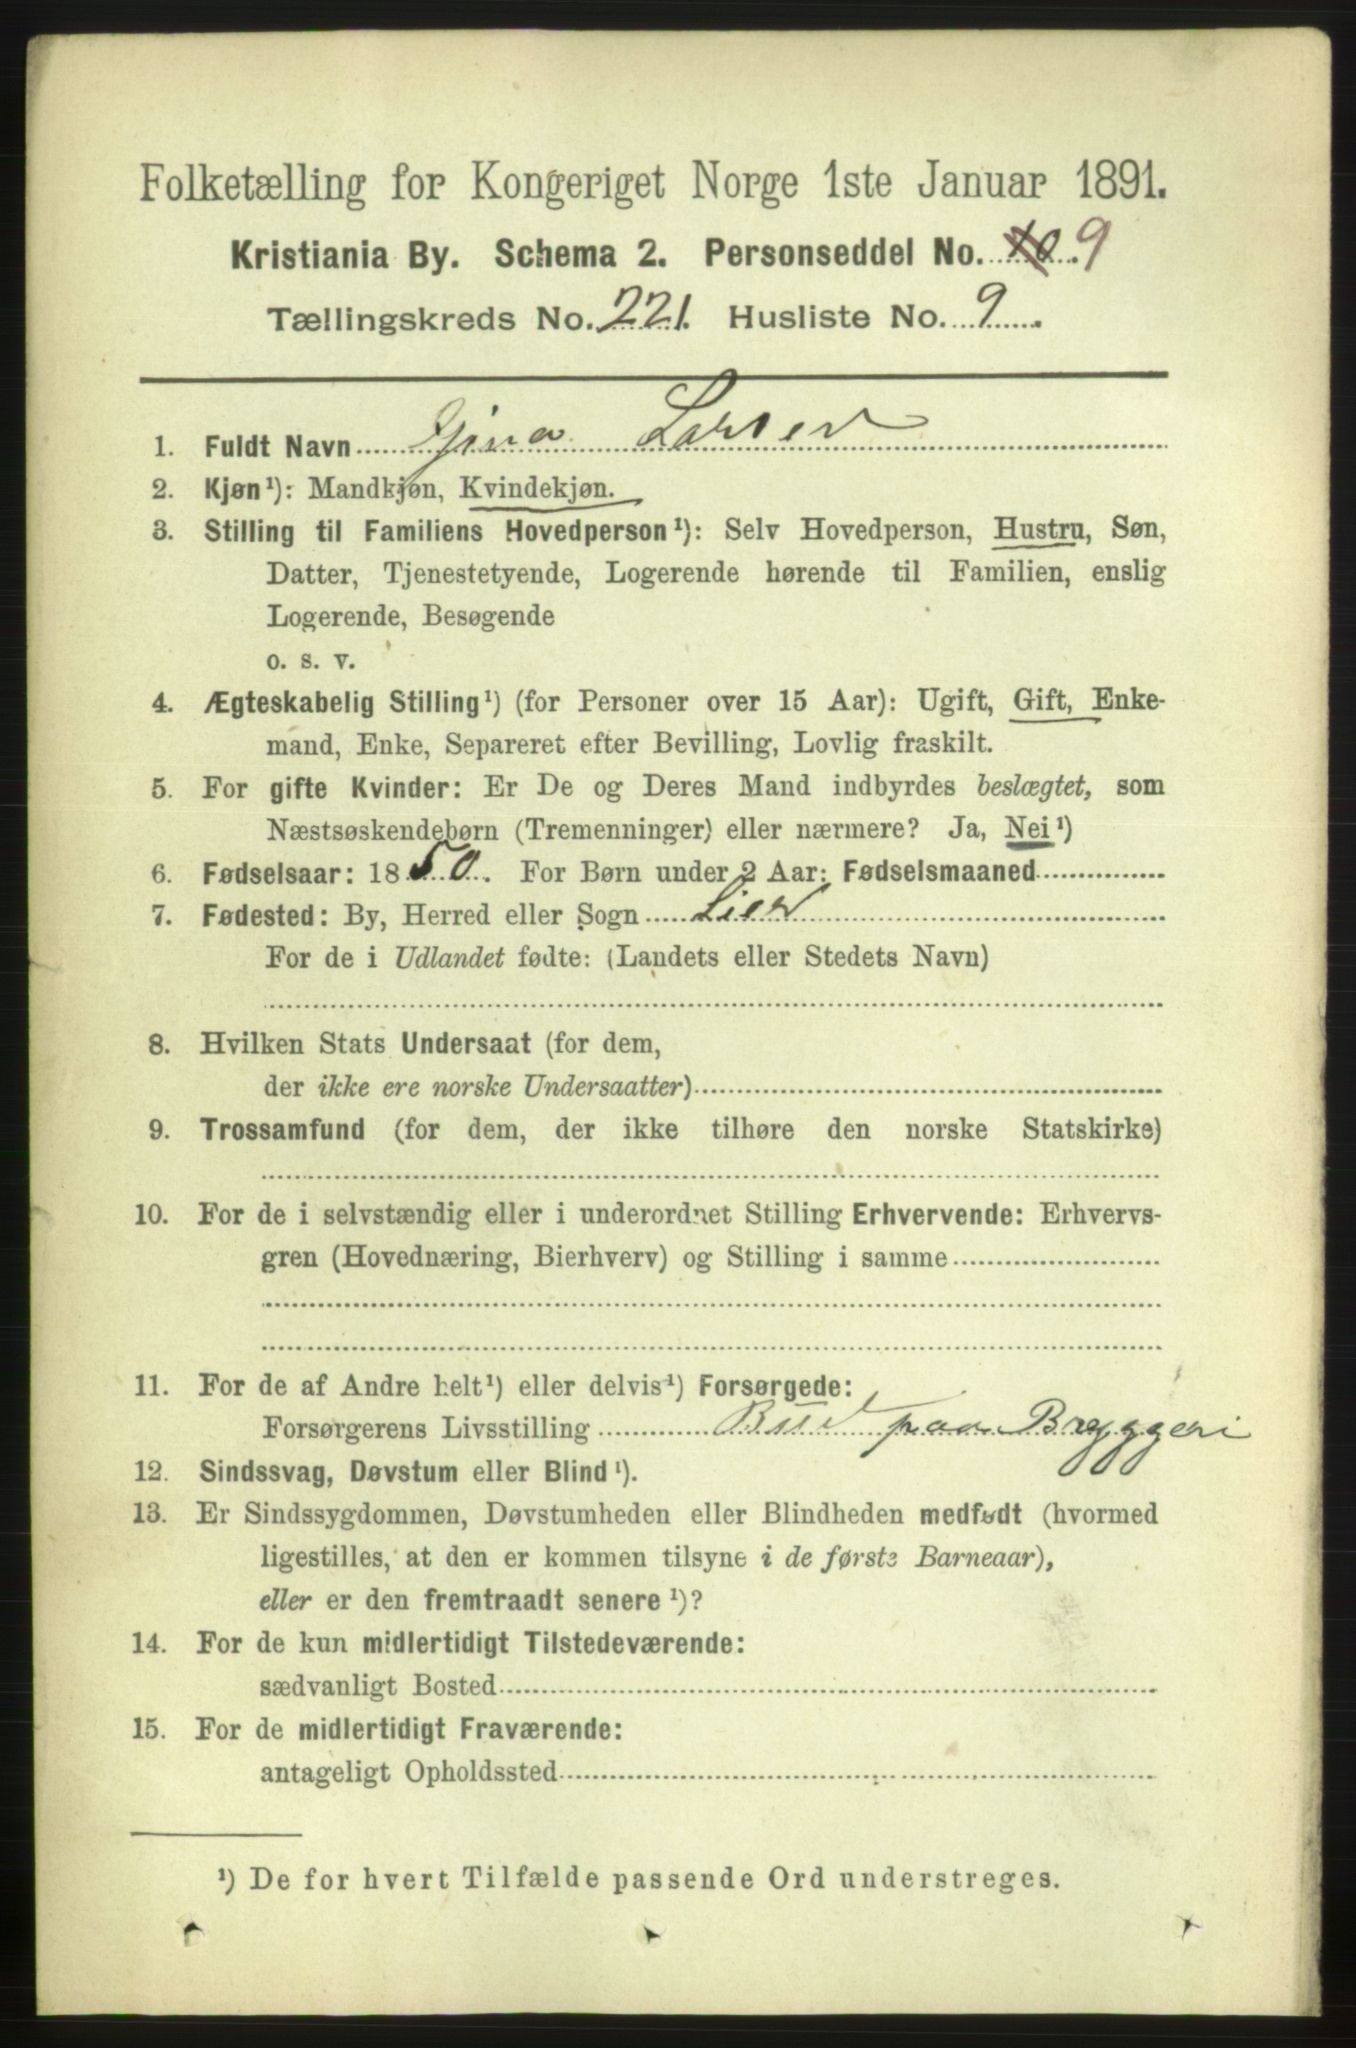 Folketælling for Kongeriget Norge 1ste Januar 1891.
Kristiania By. Schema 2. Personseddel No. 10 9
Tællingskreds No. 221. Husliste No. 9.
1. Fuldt Navn Gjina Larsen
2. Kjøn¹): Mandkjøn, Kvindekjøn.
3. Stilling til Familiens Hovedperson¹): Selv Hovedperson, Hustru, Søn,
Datter, Tjenestetyende, Logerende hørende til Familien, enslig
Logerende, Besøgende
o. s. v.
4. Ægteskabelig Stilling¹) (for Personer over 15 Aar): Ugift, Gift, Enke-
mand, Enke, Separeret efter Bevilling, Lovlig fraskilt.
5. For gifte Kvinder: Er De og Deres Mand indbyrdes beslægtet, som
Næstsøskendebørn (Tremenninger) eller nærmere? Ja, Nei¹)
6. Fødselsaar: 1850. For Børn under 2 Aar: Fødselsmaaned
7. Fødested: By, Herred eller Sogn Lier
For de i Udlandet fødte: (Landets eller Stedets Navn)
8. Hvilken Stats Undersaat (for dem,
der ikke ere norske Undersaatter)
9. Trossamfund (for dem, der ikke tilhøre den norske Statskirke)
10. For de i selvstændig eller i underordnet Stilling Erhvervende: Erhvervs-
gren (Hovednæring, Bierhverv) og Stilling i samme
11. For de af Andre helt¹) eller delvis¹) Forsørgede:
Forsørgerens Livsstilling Bud paa Bryggeri
12. Sindssvag, Døvstum eller Blind¹).
13. Er Sindssygdommen, Døvstumheden eller Blindheden medfødt (hvormed
ligestilles, at den er kommen tilsyne i de første Barneaar),
eller er den fremtraadt senere¹)?
14. For de kun midlertidigt Tilstedeværende:
sædvanligt Bosted
15. For de midlertidigt Fraværende:
antageligt Opholdssted
¹) De for hvert Tilfælde passende Ord understreges.